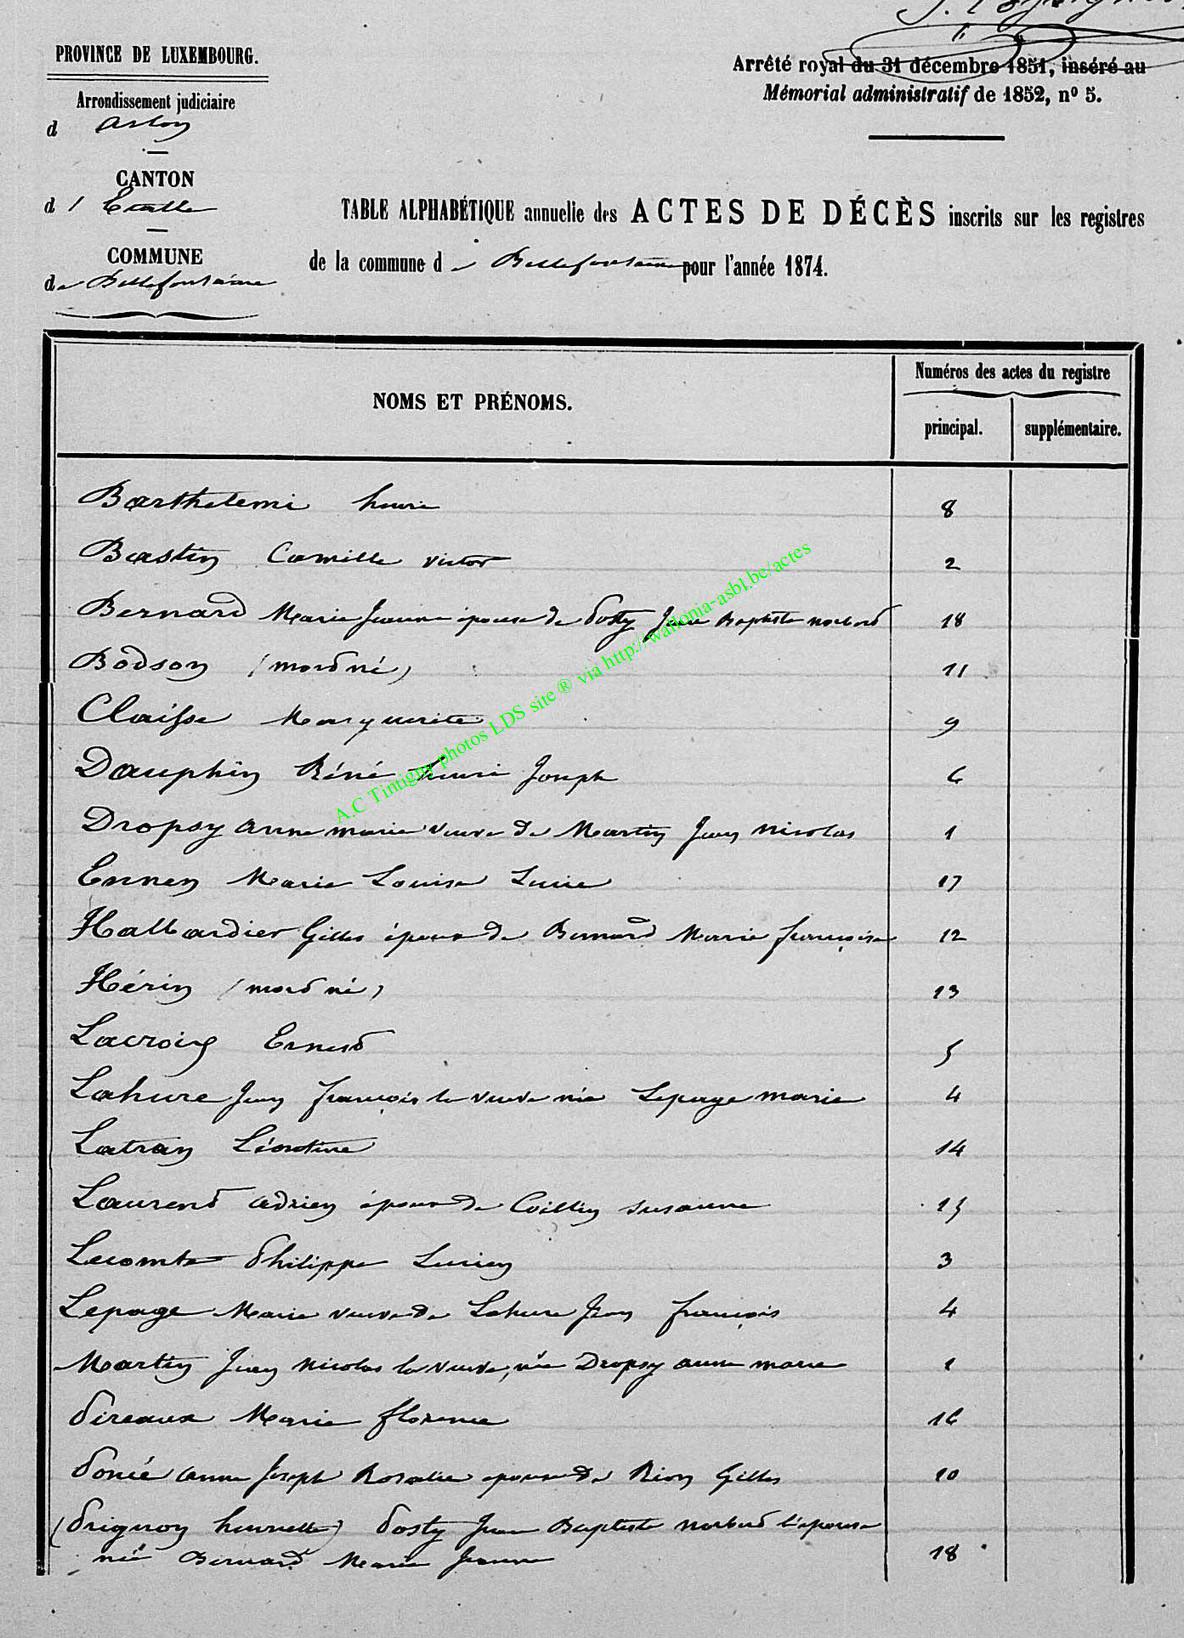 PROVINCE DE LUXEMBOURG.
Arrondissement judiciaire
d Arlon
CANTON
d' Etalle
COMMUNE
de Bellefontaine
Arrêté royal du 31 décembre 1851, inséré au
Mémorial administratif de 1852, nº 5.
TABLE ALPHABÉTIQUE annuelle des ACTES DE DÉCÈS inscrits sur les registres
de la commune d e Bellefontaine pour l'année 1874.
NOMS ET PRÉNOMS.
Numéros des actes du registre
principal.
supplémentaire.
Barthelemi henri 8
Bastin Camille victor 2
Bernard Marie Jeanne épouse de Posty Jean Baptiste norbert 18
Bodson (mort né) 11
Claisse Marguerite 9
Dauphin Réné henri Joseph 6
Dropsy anne marie veuve de Martin Jean Nicolas 1
Ennen Marie Louise Lucie 17
Hallardier Gilles époux de Bernard Marie françoise 12
Hérin (mort né) 13
Lacroix Ernest 5
Lahure Jean françois la veuve née Lepage marie 4
Latran Léontine 14
Laurent adrien époux de Collin susanne 15
Lecomte Philippe Lucien 3
Lepage Marie veuve de Lahure Jean françois 4
Martin Jean Nicolas la veuve, née Dropsy anne marie 1
Pireaux Marie florence 16
Poncé anne Joseph Rosalie épouse de Rion Gilles 10
(Prignon henriette) Posty Jean Baptiste norbert l'épouse
née Bernard Marie Jeanne 18
A.C Tintigny photos LDS site ® via http://wallonia-asbl.be/actes